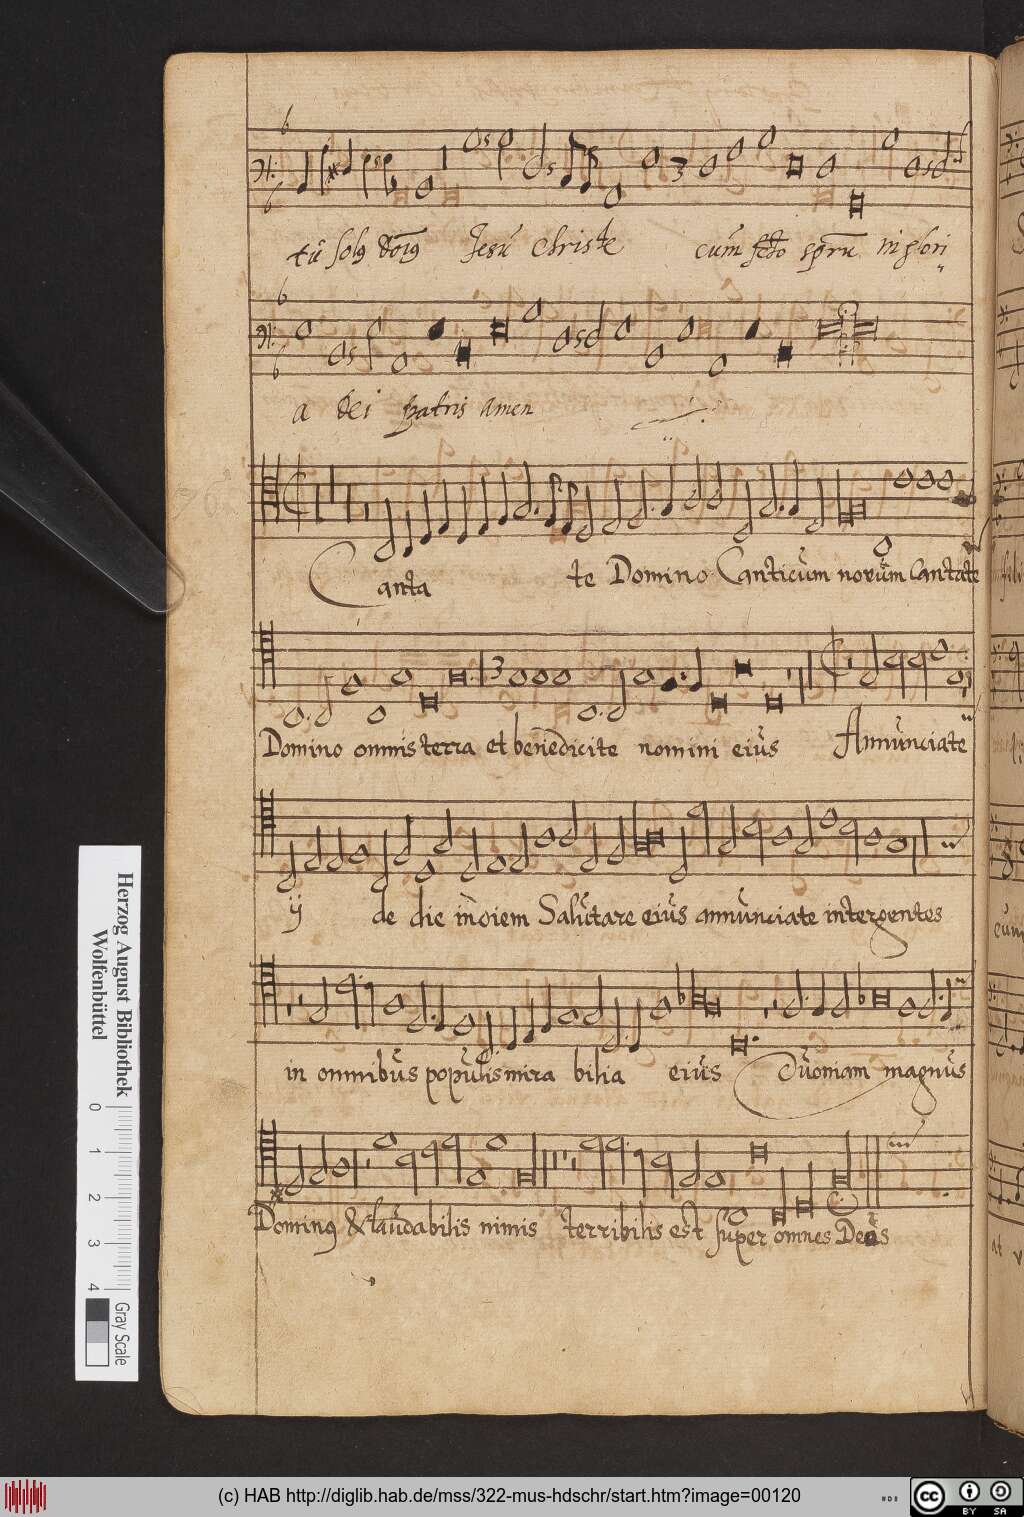 tu solus dominus Jesu Christe cum sancto spiritu in glori
a dei patris amen
Canta te Domino Canticum novum Cantate
Domino omnis terra et benedicite nomini eius Annunciate
ij de die in diem Salutare eius annunciate inter gentes
in omnibus populis mira bilia eius Quoniam magnus
Dominus & laudabilis nimis terribilis est super omnes Deos
Herzog August Bibliothek
Wolfenbüttel
0 1 2 3 4 Gray Scale
(c) HAB http://diglib.hab.de/mss/322-mus-hdschr/start.htm?image=00120
cc BY SA